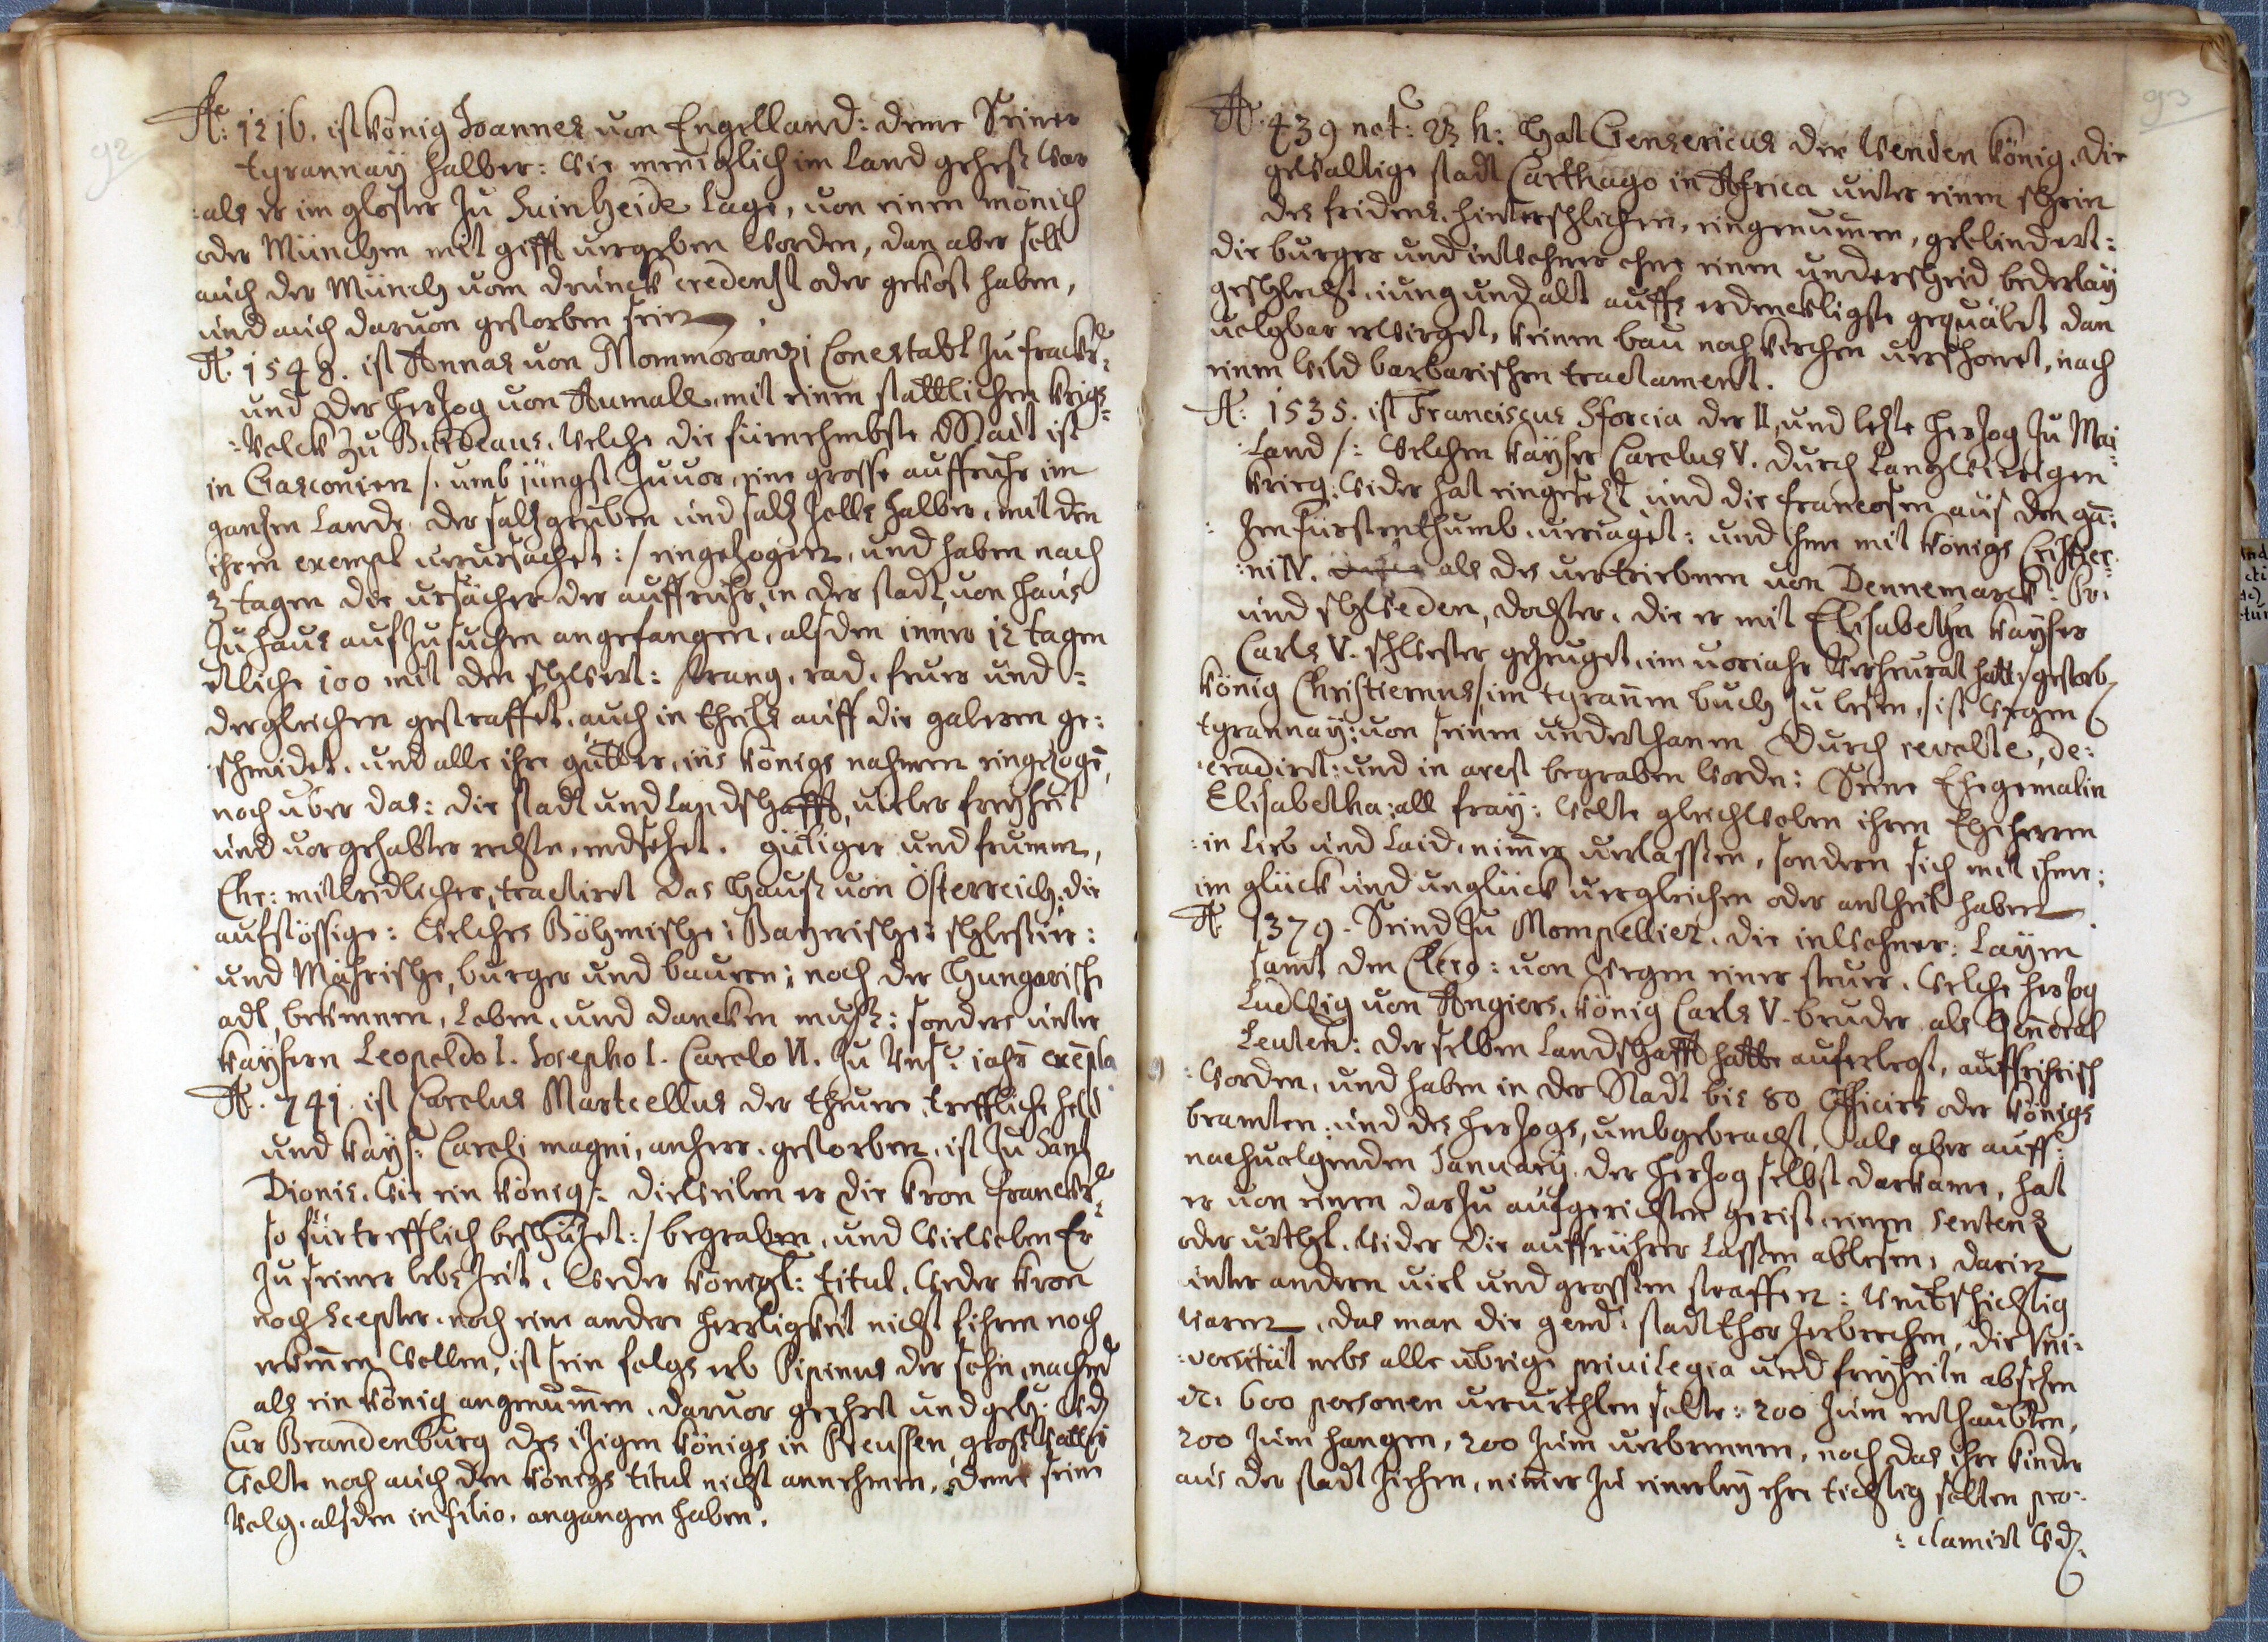 92
Aō: 1216. ist König Joannes von Engelland: deme Seiner
tyrannaÿ halber: wie meniglich im Land gehest war
:als er im gloster zu Suinheide Lage, von einen mönich
oder München mit gifft vergeben worden, dan aber soll
auch der Münch vom drunck credenst oder gekost haben,
und auch darvon gestorben sein.
A. 1548. ist Annas von Mommoranzi Conestabl zu franckr:
und der Herzog von Aumall, mit einen stattlichen Krigs
:volck zu Burdeaus. welche die fürnehmbste Stadt ist
in Gasconien /: umb jüngst zuvor, eine grosse auffruhr im
gantzen Lande, der saltzgruben und saltz zolls halber, mit den
ihren exempl verursachet :/ eingezogen, und haben nach
3 tagen die ursächer der auffruhr, in der stadt, von haus
zu haus aufzusuchen angefangen, alsden inner 12 tagen
etliche 100 mit den schwert: strang, rad, feuer und
dergleichen gestraffet, auch in theils auff die galeren ge:
schmidet, und alle ihre gütter, ins Königs nahmen eingezogē,
noch uber das: die stadt und Landschafft, vieler freyheit
und vorgehabter rechte, endsetzet. gütiger und frummer,
Ehe: mitleidlicher, tractiret das Hauß von Österreich, die
aufstössige: welches Böhmische: Bayrische: schlesier:
und Mährische, burger und bauren; noch der Hungarische
adl, bekennen, Loben, und dancken muß: sonders unter
Kaÿsern Leopoldo I. Josepho I. Carolo VI. zu Uns: iahr exēpla
A. 741. ist Carolus Martcellus der theure, treffliche held
und Kaÿs: Caroli magni, anherr, gestorben, ist zu Sant
Dionis, wie ein König /: dieweilen er die Kron franckr:
so fürtrefflich beschützet :/ begraben, und wielwoben Er
zu seiner lebszeit, weder Königl: titul, weder Kron
noch Scepter, noch eine andere herrligkeit nicht fihren noch
erkennen wollen, ist sein folgs erb Pipinus der sohn, nachend
als ein König angenummen, darvor geehret und geh: wd
Cur Brandenburg des itzigen Königs in Preussen, großvatter
wolte noch auch den Königs titul nicht annehmen, deme seine
volg, alsden in filio, angangen haben.
93
A. 439 not: 23 h: hat Gensericus der Wenden König, die
gewaltige stadt Carthago in Africa unter einen schein
des fridens, hinterschlichen, eingenummen, geblindert:
die burger und inwohner ohne einen underscheid bederlaÿ
geschlecht, iung und alt auffs erdencklichste gequälet dan
volgbar erwirget, keinen bau noch Kirchen verschonet, nach
einen wild barbarischen tractament.
A: 1535. ist Franciscus Sforcia der II. und letzte Herzog zu Mai
:Land /: welchen Kaÿser Carolus V. durch Langwierigen
Krieg: wider hat eingesetzt, und die francosen aus den gā:
zen fürstenthumb, veriaget: und ihne mit Königs Christer:
:ni IV. als des vertriebnen von Dennemarck: Nor:
und schweden, dochter, die er mit Elisabethen Kaÿser
Carls V. schwester gezeuget, im voriahr Verheurat hatt :/ gestorb
König Christiernus /: im tyrannen buch zu lesen :/ ist wegen
tyrannaÿ: von seinen underthanen durch revolte, de:
:eradiret: und in arest begraben worden: Seine Ehegemalin
Elisabetha: all fraÿ: wolte gleichwoben ihren Eheherren
:in Lieb und Laid, nimer verlassen, sondern sich mit ihme:
im glück und unglück vergleichen oder antheil haben
A. 1379. Seind zu Mompellier, die inwohner: Layen
samt den Clero: von wegen einer steuer, welche Herzog
Ludwig von Angiers, König Carls V. bruder, als General
Leutend: derselben Landschafft hatte auferlegt, auffrihrisch
:worden, und haben in der Stadt bis 80 Officirs oder Königs
beamten: und des Herzogs, umbgebracht, als aber auff:
nachvolgenden Januarÿ, der Herzog selbst darkame, hat
er von einen darzu aufgerichten gerist, einen Sentenz
oder urthl, wider die auffrührer Lassen ablesen, darin
unter andern viel und grossen straffen: umbschichtig
waren, das man die gend: stadt thor zerbrechen, die Uni:
:versität nebs alle ubrige privilegia und freyheitn abschen
etc. 600 personen verurthlen solte: 200 zum enthaubten,
200 zum hangen, 200 zum verbrennen, noch das ihre kinder
aus der stadt ziehen, nimer zu einerleÿ ehre tichtig solten pro:
:clamirt wd.